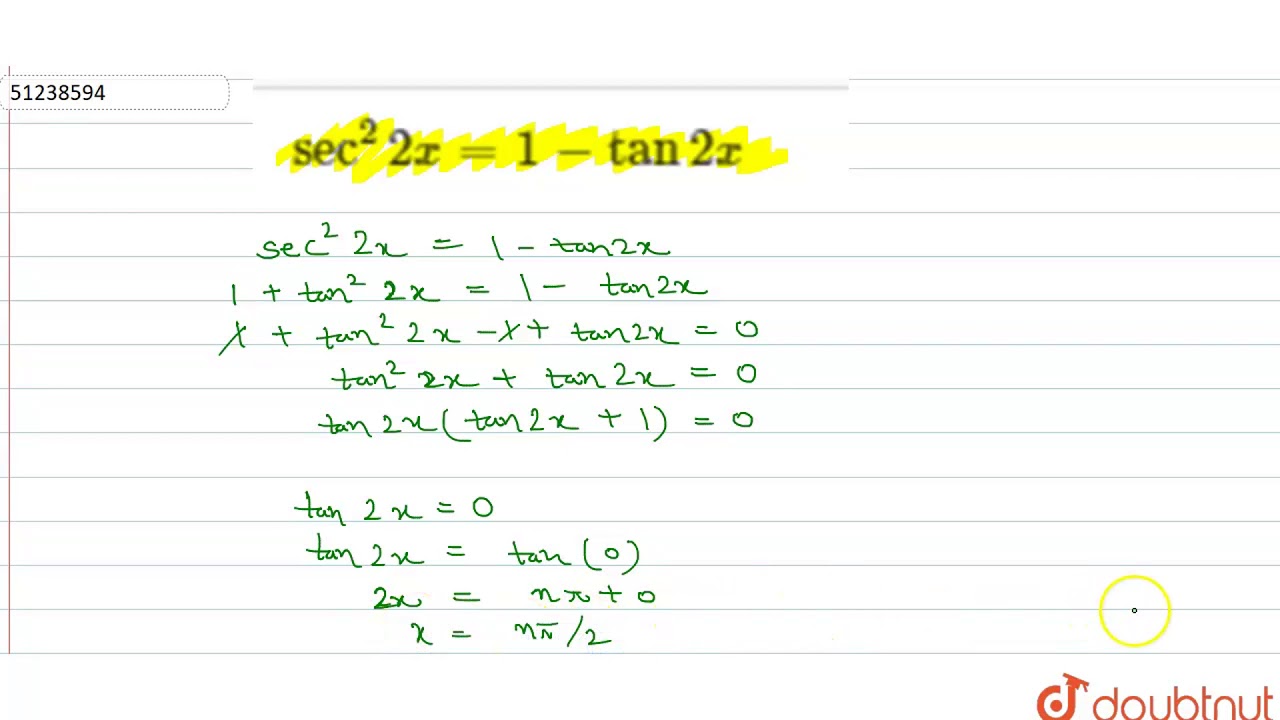 51238594
sec² 2x = 1 − tan 2x
sec² 2x = 1 − tan2x
1 + tan² 2x = 1 − tan2x
1 + tan² 2x − 1 + tan2x = 0
tan² 2x + tan 2x = 0
tan 2x (tan 2x + 1) = 0
tan 2x = 0
tan 2x = tan (0)
2x = nπ + 0
x = nπ/2
doubtnut